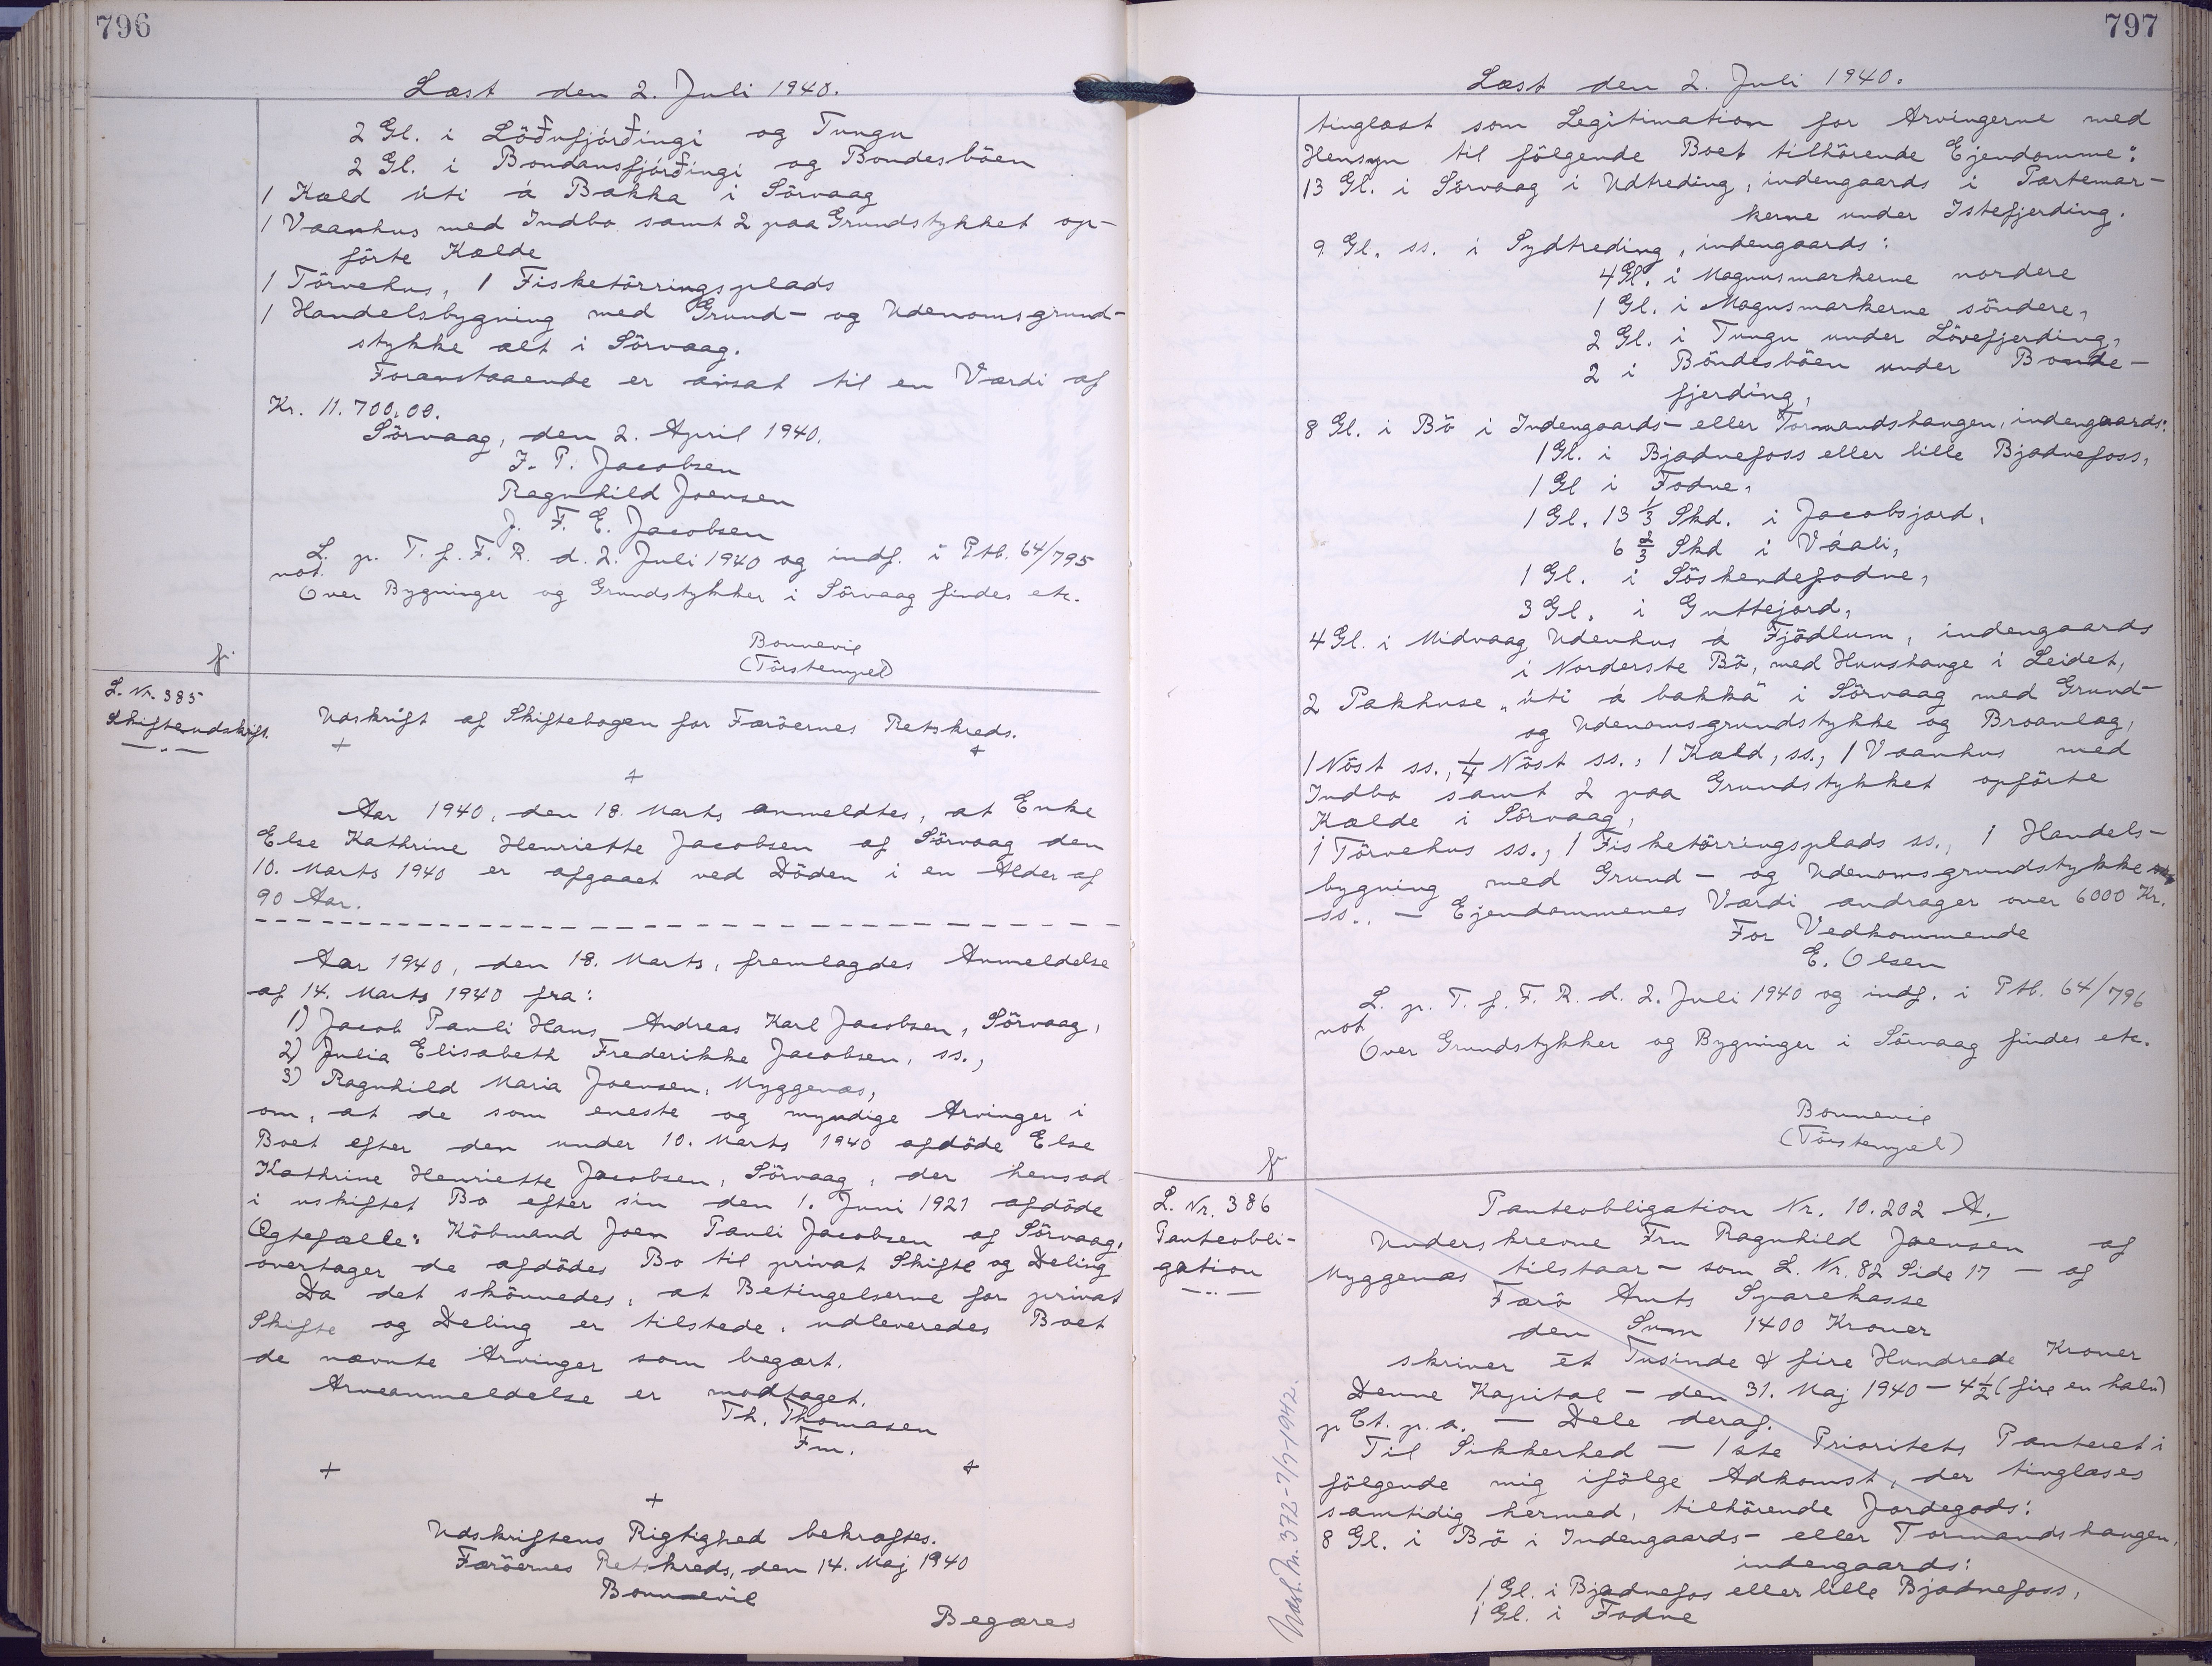 796
Læst den 2. Juli 1940.
2 Gl. i Löðufjórðingi og Tungu
2 Gl. i Bondansfjórðingi og Bondesböen
1 Kæld úti á Bakka i Sörvaag
1 Vaanhus med Indbo samt 2 paa Grundstykket op-
förte Kælde
1 Törvehus, 1 Fisketörringsplads
1 Handelsbygning med Grund- og Udenomsgrund-
stykke alt i Sörvaag.
Foranstaaende er ansat til en Værdi af
Kr. 11.700.00.
Sörvaag, den 2. April 1940.
J. P. Jacobsen
Ragnhild Joensen
J. F. E. Jacobsen
L. p. T. f. F. R. d. 2. Juli 1940 og indf. i Ptb. 64/795
not.
Over Bygninger og Grundstykker i Sörvaag findes etc.
Bonnevie
(Törstempel)
fr.
L. Nr. 385
Skifteudskrift
Udskrift af Skiftebogen for Færöernes Retskreds.
+ +
+
Aar 1940, den 18. Marts anmeldtes, at Enke
Else Kathrine Henriette Jacobsen af Sörvaag den
10. Marts 1940 er afgaaet ved Döden i en Alder af
90 Aar.
Aar 1940, den 18. Marts, fremlagdes Anmeldelse
af 14. Marts 1940 fra:
1) Jacob Pauli Hans Andreas Karl Jacobsen, Sörvaag,
2) Julia Elisabeth Frederikke Jacobsen, ss.,
3) Ragnhild Maria Joensen, Myggenæs,
om, at de som eneste og myndige Arvinger i
Boet efter den under 10. Marts 1940 afdöde Else
Kathrine Henriette Jacobsen, Sörvaag, der hensad
i uskiftet Bo efter sin den 1. Juni 1921 afdöde
Ægtefælle: Köbmand Joen Pauli Jacobsen af Sörvaag,
overtager de afdödes Bo til privat Skifte og Deling
Da det skönnedes, at Betingelserne for privat
Skifte og Deling er tilstede, udleveredes Boet
de nævnte Arvinger som begært.
Arveanmeldelse er modtaget.
Th. Thomasen
Fm.
+ +
+
Udskriftens Rigtighed bekræftes.
Færöernes Retskreds, den 14. Maj 1940
Bonnevie
Begæres
797
Læst den 2. Juli 1940.
tinglæst som Legitimation for Arvingerne med
Hensyn til fölgende Boet tilhörende Ejendomme:
13 Gl. i Sörvaag i Udtreding, indengaards i Partemar-
kerne under Istefjerding.
9 Gl. ss. i Sydtreding, indengaards:
4 Gl. i Magnusmarkerne nordere
1 Gl. i Magnusmarkerne söndere,
2 Gl. i Tungu under Lövefjerding,
2 i Böndesböen under Bonde-
fjerding,
8 Gl. i Bö i Indengaards- eller Tormandshaugen, indengaards:
1 Gl. i Bjadnefoss eller lille Bjadnefoss,
1 Gl i Fodne,
1 Gl. 13 1/3 Skd. i Jacobsjord,
6 2/3 Skd i Váali,
1 Gl. i Söskendefodne,
3 Gl. i Guttejord,
4 Gl. i Midvaag Udenhus á Fjödlum, indengaards
i Norderste Bö, med Hunshauge i Leidet,
2 Pakhuse „úti á bakka" i Sörvaag med Grund-
og Udenomsgrundstykke og Broanlæg,
1 Nöst ss., 1/4 Nöst ss., 1 Kæld, ss., 1 Vaanhus med
Indbo samt 2 paa Grundstykket opförte
Kælde i Sörvaag,
1 Törvehus ss., 1 Fisketörringsplads ss., 1 Handels-
bygning med Grund- og Udenomsgrundstykke
ss.. — Ejendommenes Værdi andrager over 6000 Kr.
For Vedkommende
E. Olsen
L. p. T. f. F. R. d. 2. Juli 1940 og indf. i Ptb. 64/796
not.
Over Grundstykker og Bygninger i Sörvaag findes etc.
Bonnevie
(Törstempel)
fr.
L. Nr. 386
Panteobli-
gation
Panteobligation Nr. 10.202 A.
Underskrevne Fru Ragnhild Joensen af
Myggenæs tilstaar — som L. Nr. 82 Side 17 — af
Færö Amts Sparekasse
den Sum 1400 Kroner
skriver ét Tusinde & fire Hundrede Kroner
Denne Kapital — den 31. Maj 1940 — 4 1/2 (fire en halv)
p Ct. p. a. — Dele deraf.
Til Sikkerhed — 1ste Prioritets Panteret i
fölgende mig ifölge Adkomst, der tinglæses
samtidig hermed, tilhörende Jordegods:
8 Gl. i Bö i Indengaards- eller Tormandshaugen,
indengaards:
1 Gl. i Bjadnefos eller lille Bjadnefoss,
1 Gl. i Fodne
Udsl. Nr. 372-7/7-1942.